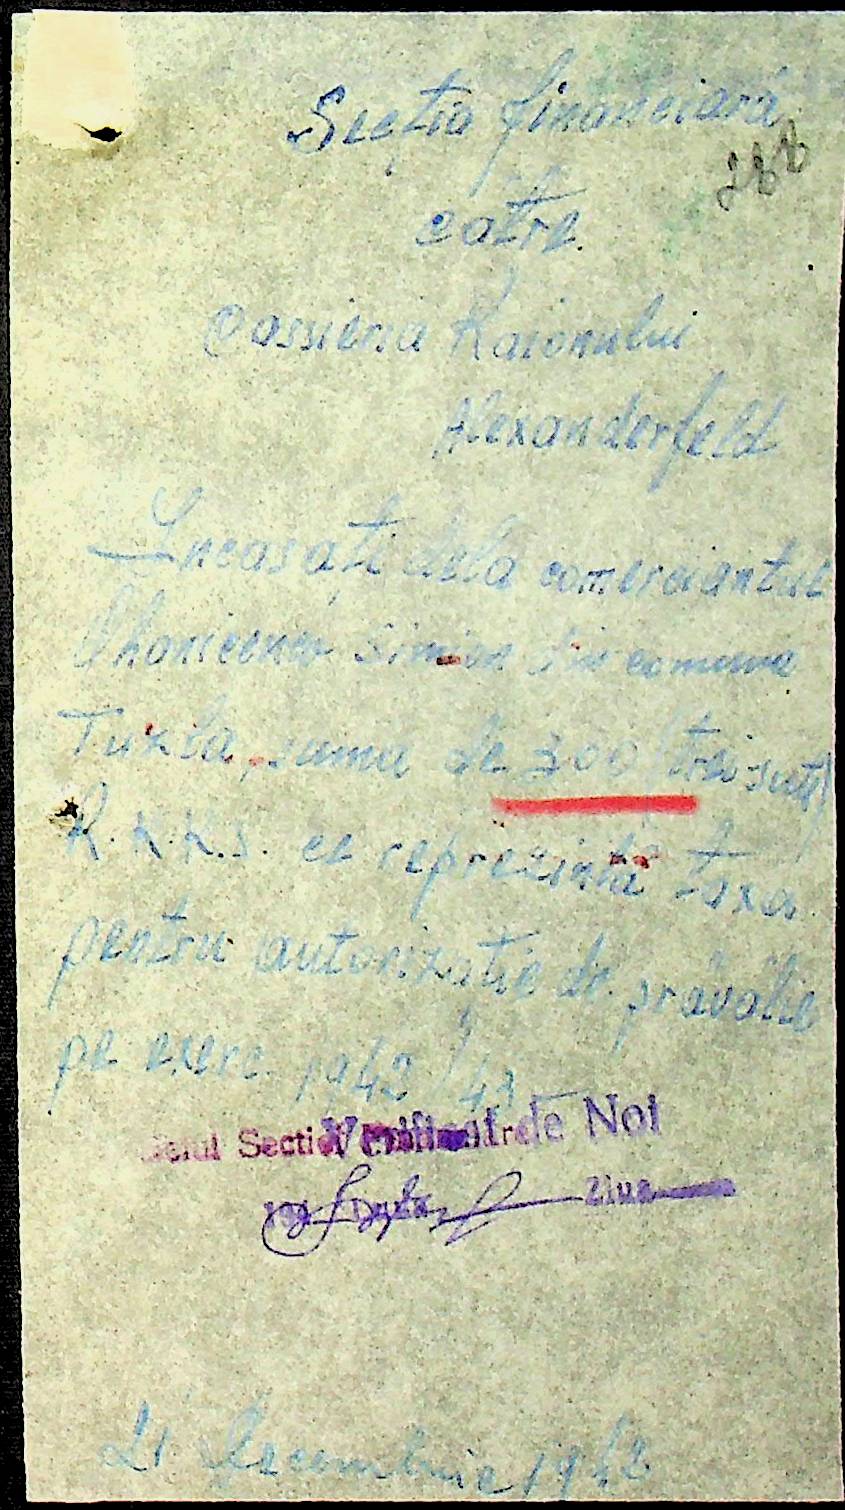 Secția financiară
288
către
Cassieria Raionului
Alexanderfeld
Incasați dela comerciantul
Simion din comuna
Tuzla, suma de 300 (trei sute)
R.K.K.S. ce reprezintă taxa
pentru autorizație de prăvălie
pe exerc. 1942/43
Verificat de Noi
Șeful Secției Financiare
Ziua
21 Decembrie 1942